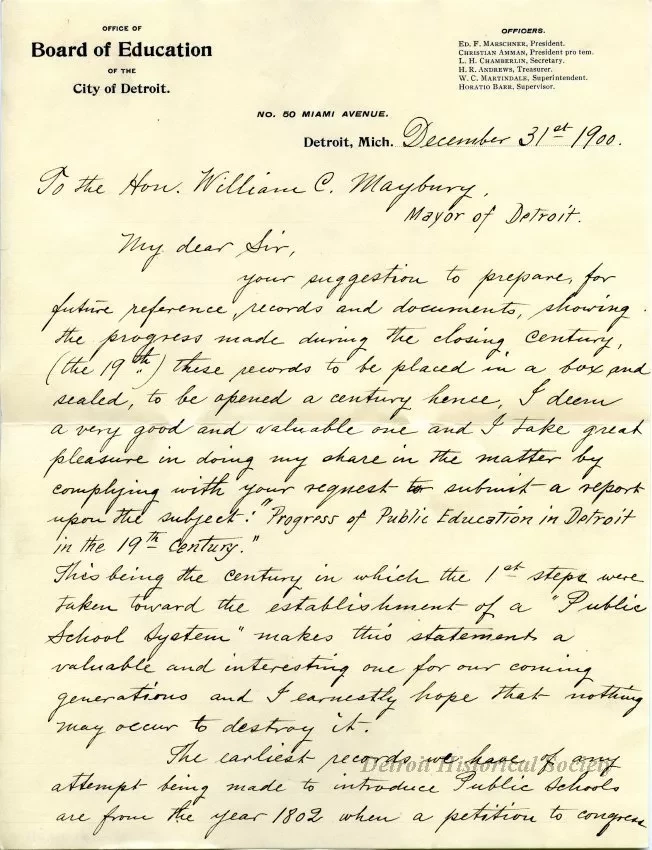 OFFICE OF
Board of Education
OF THE
City of Detroit.
OFFICERS.
ED. F. MARSCHNER, President.
CHRISTIAN AMMAN, President pro tem.
L. H. CHAMBERLIN, Secretary.
H. R. ANDREWS, Treasurer.
W. C. MARTINDALE, Superintendent.
HORATIO BARR, Supervisor.
NO. 50 MIAMI AVENUE.
Detroit, Mich. December 31st 1900.
To the Hon. William C. Maybury,
Mayor of Detroit.
My dear Sir,
your suggestion to prepare, for
future reference, records and documents, showing
the progress made during the closing century,
(the 19th) these records to be placed in a box and
sealed, to be opened a century hence, I deem
a very good and valuable one and I take great
pleasure in doing my share in the matter by
complying with your request to submit a report
upon the subject: "Progress of Public Education in Detroit
in the 19th Century."
This being the century in which the 1st steps were
taken toward the establishment of a "Public
School System" makes this statement a
valuable and interesting one for our coming
generations and I earnestly hope that nothing
may occur to destroy it.
The earliest records we have of any
Detroit Historical Society
attempt being made to introduce Public Schools
are from the year 1802 when a petition to congress